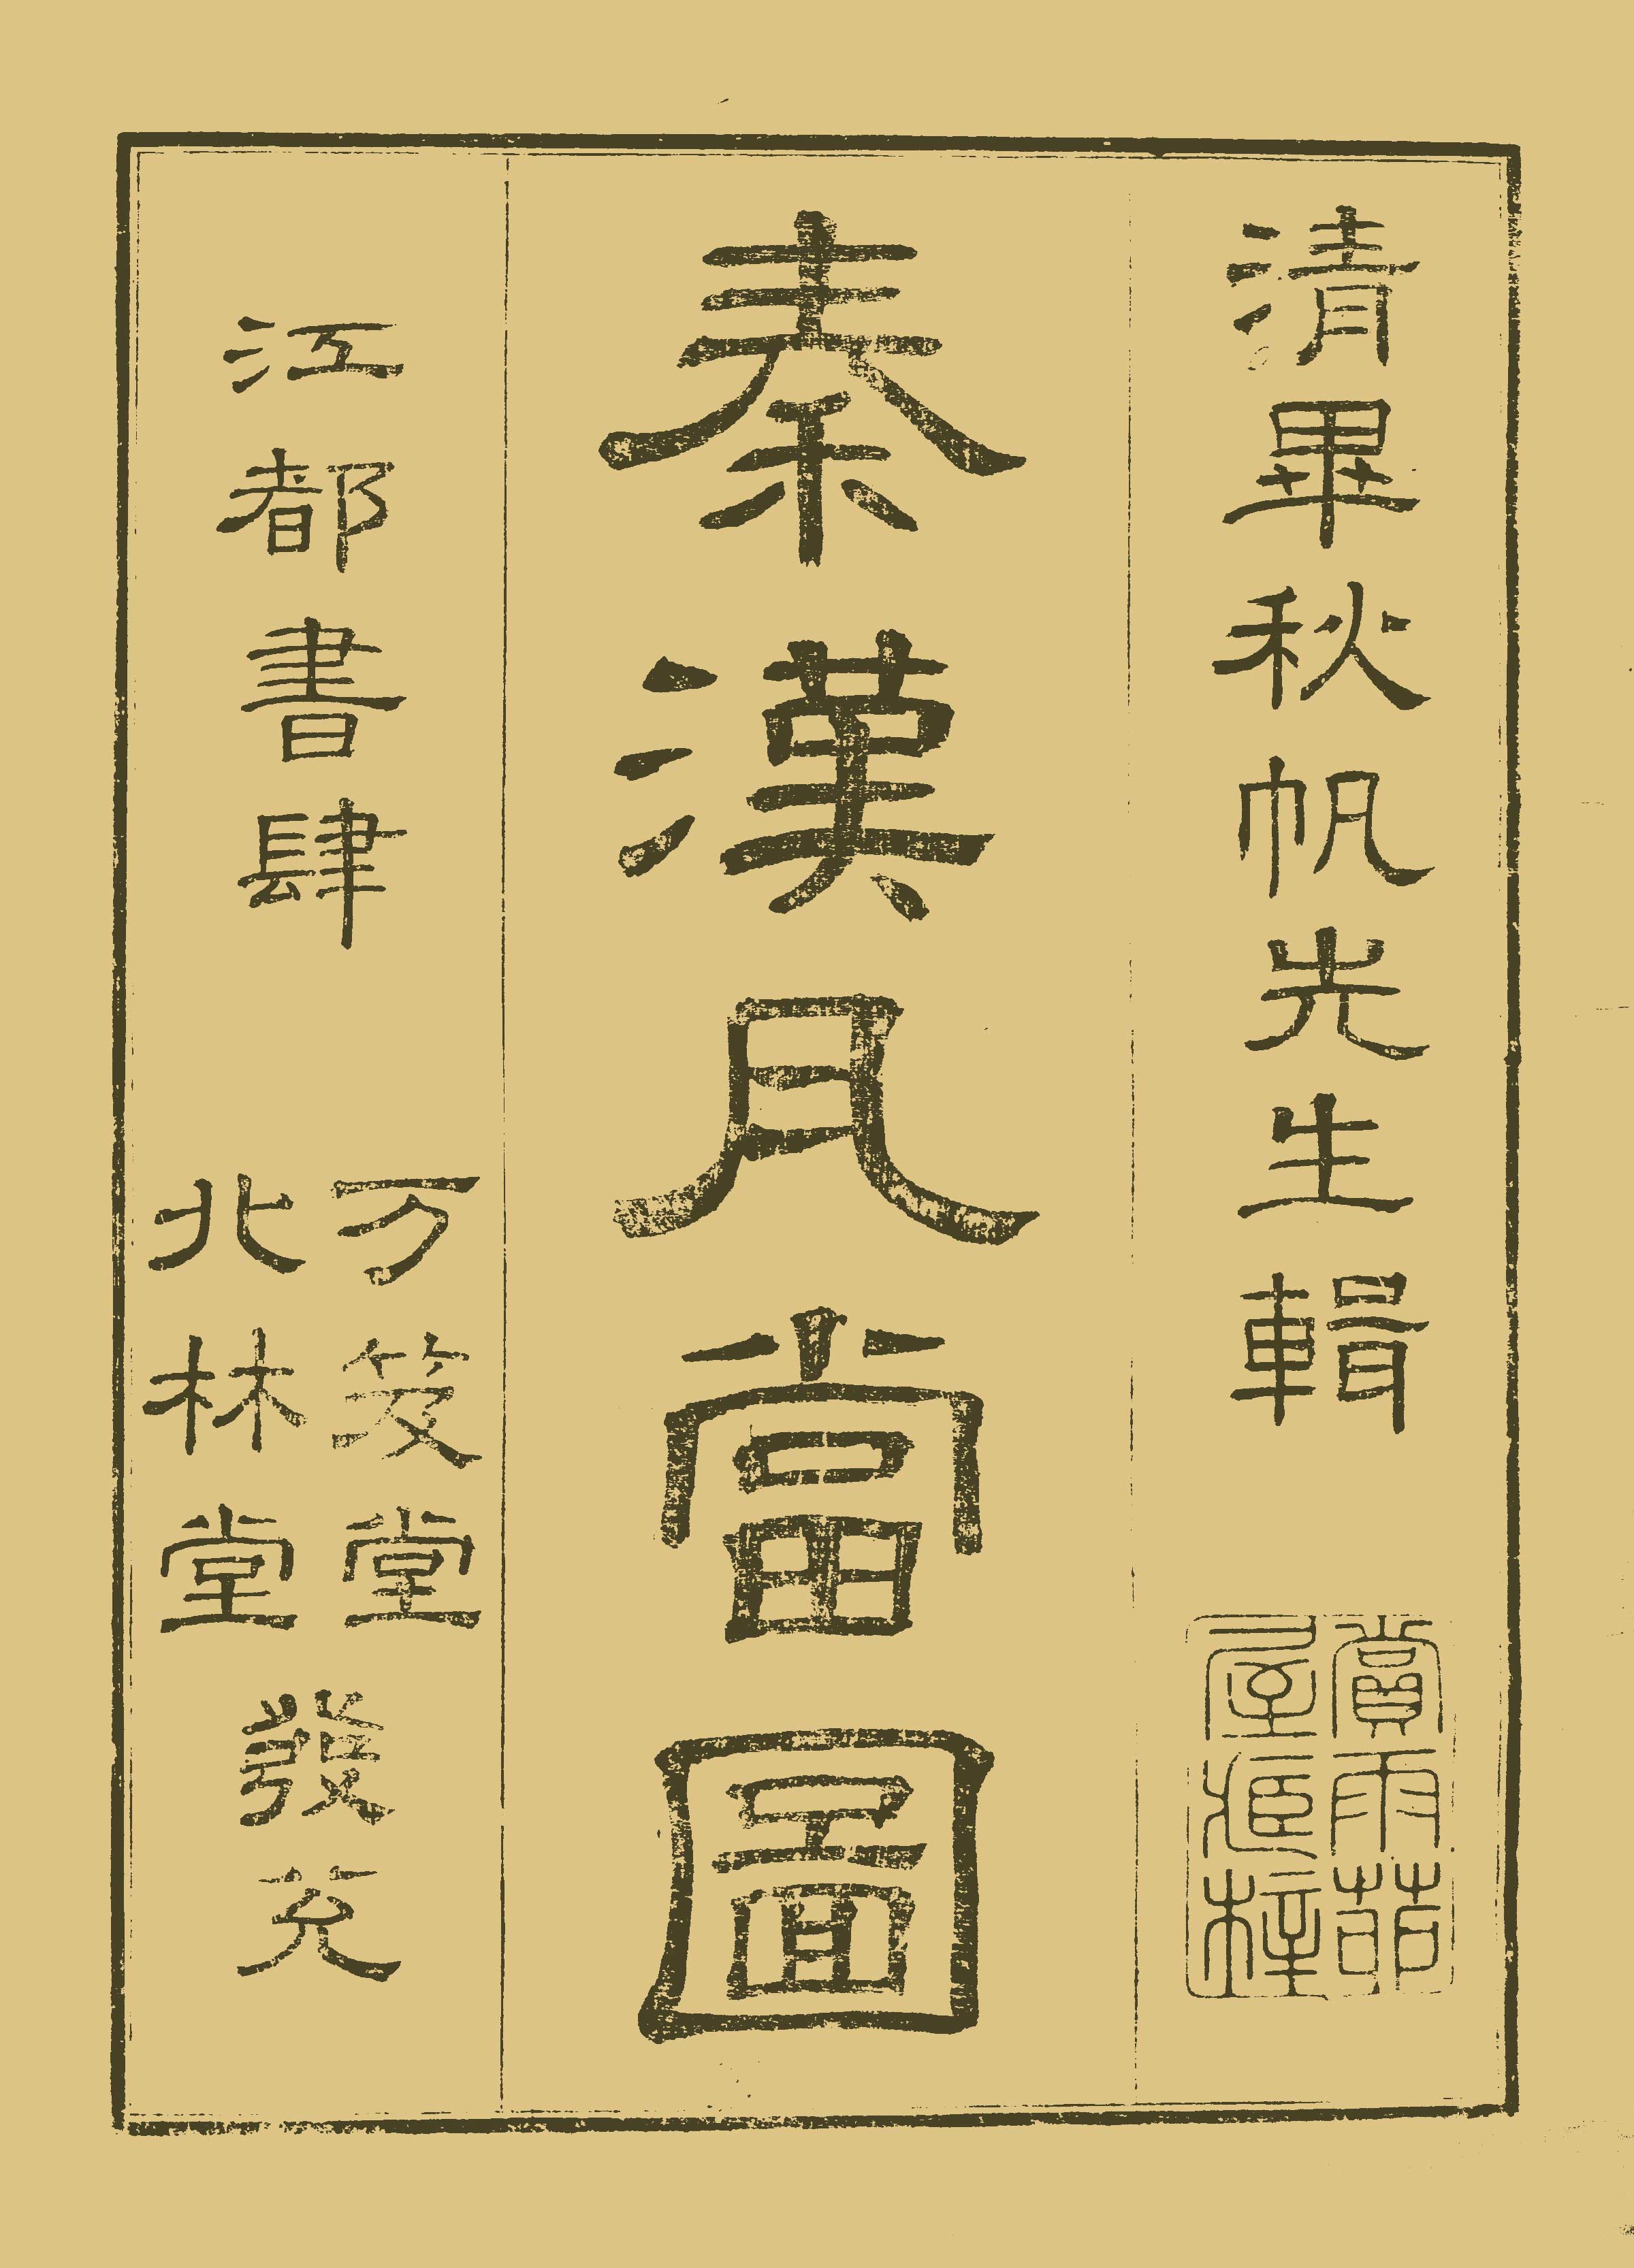 清畢秋帆先生輯
賞雨茆
屋臧梓
秦漢瓦當圖
江都書肆
万笈堂
北林堂
發兌